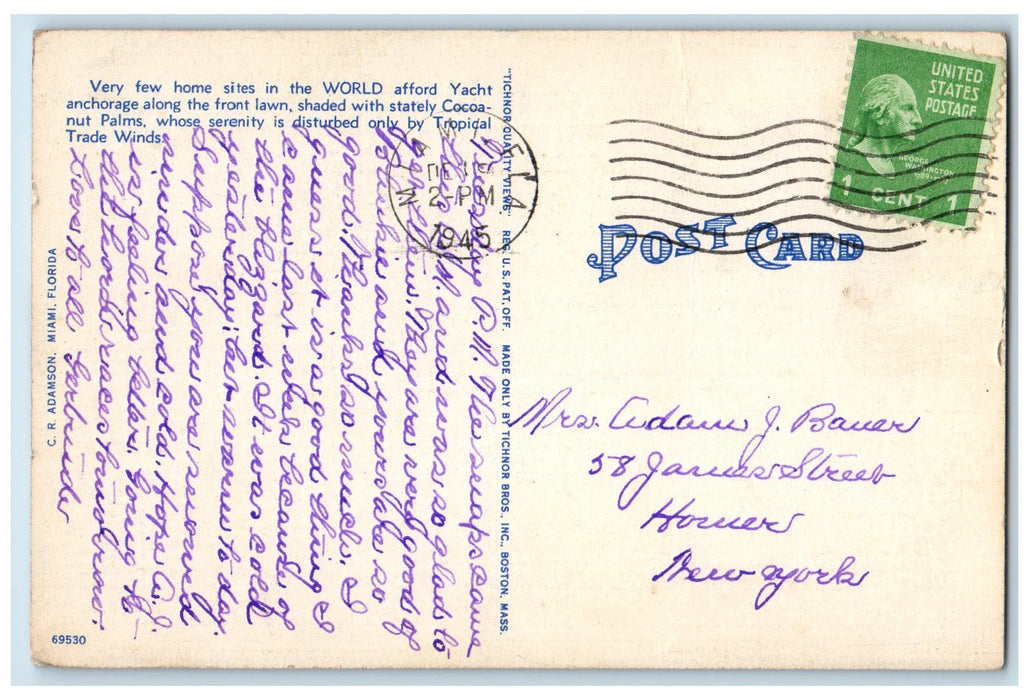 Very few home sites in the WORLD afford Yacht
anchorage along the front lawn, shaded with stately Cocoa-
nut Palms, whose serenity is disturbed only by Tropical
Trade Winds.
P.M. The snaps came
and was so glad to
They are very good of
and yours also so
good. Thanks so much. I
guess it is a good thing I
came last week because of
the blizzard. It was cold
yesterday; but warm to day.
Suppose you are snowed
under and cold. Hope A. J.
is feeling better. Going to
the horse races tomorrow.
Love to all. Gertrude
C. R. ADAMSON. MIAMI, FLORIDA
69530
"TICHNOR QUALITY VIEWS" REG. U.S. PAT. OFF. MADE ONLY BY TICHNOR BROS. INC., BOSTON, MASS.
2-PM
1945
UNITED
STATES
POSTAGE
GEORGE
WASHINGTON
1 CENT 1
POST CARD
Mrs. Adam J. Bauer
58 James Street
Homer
New York